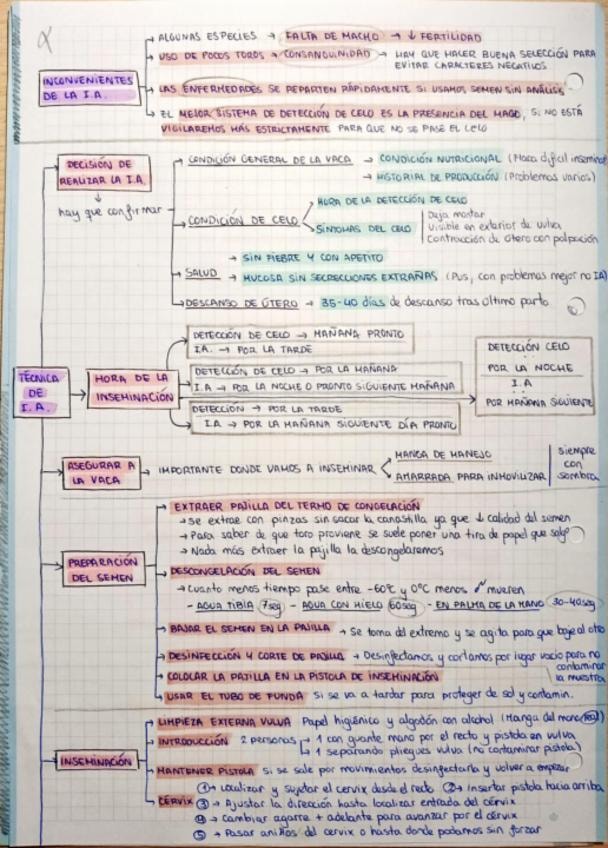 INCONVENIENTES DE LA I.A.
ALGUNAS ESPECIES → FALTA DE MACHO → ↓ FERTILIDAD
USO DE POCOS TOROS → CONSANGUINIDAD → HAY QUE HACER BUENA SELECCIÓN PARA
EVITAR CARACTERES NEGATIVOS
LAS ENFERMEDADES SE REPARTEN RÁPIDAMENTE SI USAMOS SEMEN SIN ANÁLISIS
EL MEJOR SISTEMA DE DETECCIÓN DE CELO ES LA PRESENCIA DEL MACHO, SI NO ESTÁ
VIGILAREMOS MÁS ESTRICTAMENTE PARA QUE NO SE PASE EL CELO
TÉCNICA
DE
I.A.
DECISIÓN DE
REALIZAR LA I.A.
hay que confirmar
CONDICIÓN GENERAL DE LA VACA → CONDICIÓN NUTRICIONAL (Flaca difícil insemina
→ HISTORIAL DE PRODUCCIÓN (Problemas varios)
CONDICIÓN DE CELO
HORA DE LA DETECCIÓN DE CELO
SÍNTOMAS DEL CELO
Deja montar
Visible en exterior de vulva
Contracción de útero con palpación
SALUD
→ SIN FIEBRE Y CON APETITO
→ MUCOSA SIN SECRECCIONES EXTRAÑAS (Pus, con problemas mejor no IA)
DESCANSO DE ÚTERO → 35-40 días de descanso tras último parto
HORA DE LA
INSEMINACIÓN
DETECCIÓN DE CELO → MAÑANA PRONTO
I.A. → POR LA TARDE
DETECCIÓN DE CELO → POR LA MAÑANA
I.A → POR LA NOCHE O PRONTO SIGUIENTE MAÑANA
DETECCIÓN → POR LA TARDE
I.A → POR LA MAÑANA SIGUIENTE DÍA PRONTO
DETECCIÓN CELO
POR LA NOCHE
I.A
POR MAÑANA SIGUIENTE
ASEGURAR A
LA VACA
→ IMPORTANTE DONDE VAMOS A INSEMINAR
MANGA DE MANEJO
AMARRADA PARA INMOVILIZAR
siempre
con
sombra
PREPARACIÓN
DEL SEMEN
EXTRAER PAJILLA DEL TERMO DE CONGELACIÓN
→ Se extrae con pinzas sin sacar la canastilla ya que ↓ calidad del semen
→ Para saber de que toro proviene se suele poner una tira de papel que salga
→ Nada más extraer la pajilla la descongelaremos
DESCONGELACIÓN DEL SEMEN
→ Cuanto menos tiempo pase entre -60°C y 0°C menos mueren
- AGUA TIBIA 7seg - AGUA CON HIELO 60seg - EN PALMA DE LA MANO 30-40seg
BAJAR EL SEMEN EN LA PAJILLA → Se toma del extremo y se agita para que baje al otro
DESINFECCIÓN Y CORTE DE PAJILLA → Desinfectamos y cortamos por lugar vacío para no
contaminar
la muestra
COLOCAR LA PATILLA EN LA PISTOLA DE INSEMINACIÓN
USAR EL TUBO DE FUNDA Si se va a tardar para proteger de sol y contamin.
INSEMINACIÓN
LIMPIEZA EXTERNA VULVA Papel higiénico y algodón con alcohol
INTRODUCCIÓN 2 personas → 1 con guante mano por el recto y pistola en vulva
→ 1 separando pliegues vulva (no contaminar pistola)
MANTENER PISTOLA Si se sale por movimientos desinfectarla y volver a empezar
CÉRVIX
① → Localizar y sujetar el cervix desde el recto ② → Insertar pistola hacia arriba
③ → Ajustar la dirección hasta localizar entrada del cérvix
④ → Cambiar agarre + adelante para avanzar por el cérvix
⑤ → Pasar anillos del cervix o hasta donde podamos sin forzar